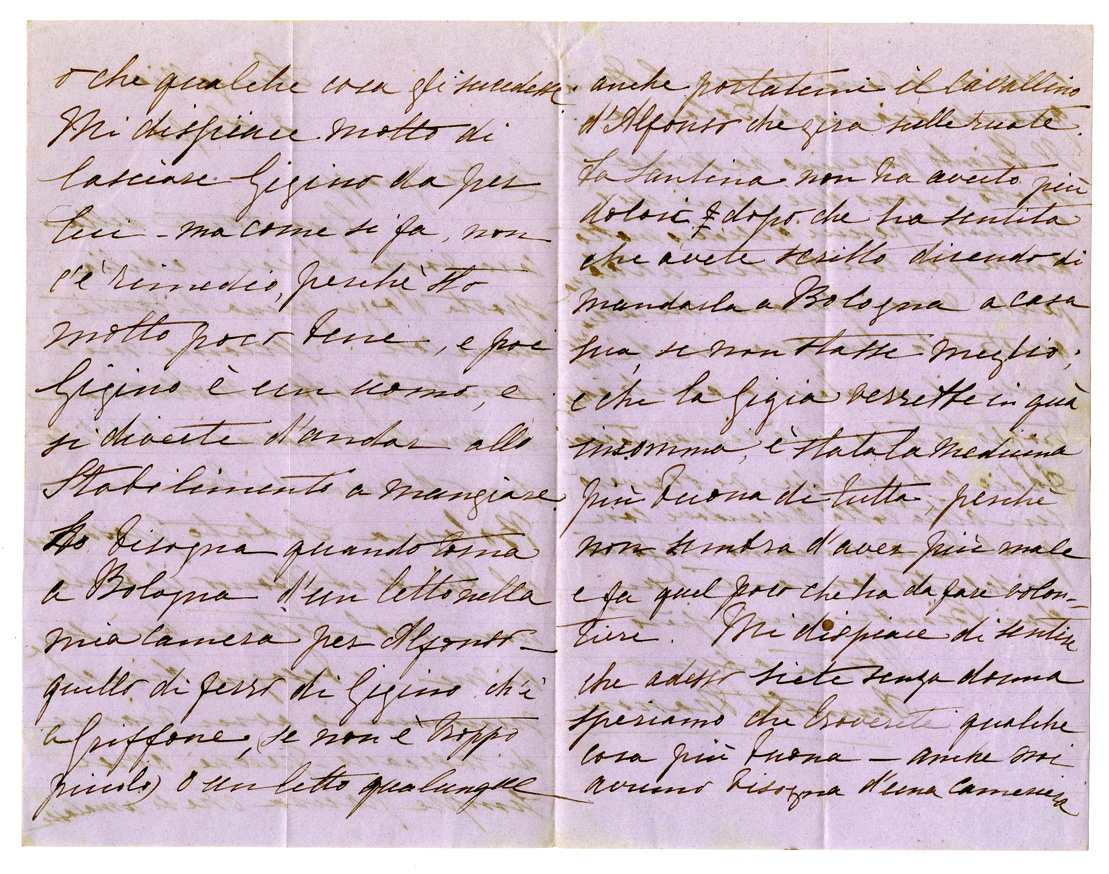 o che qualche cosa gli succedesse.
Mi dispiace molto di
lasciare Gigino da per
lui - ma come si fa, non
c'è rimedio, perchè sto
molto poco bene, e poi
Gigino è un uomo, e
si diverte d'andar allo
Stabilimento a mangiare.
Ho bisogna quando torna
a Bologna d'un letto nella
mia camera per Alfonso -
quello di ferro di Gigino ch'è
a Griffone, (se non è troppo
piccolo) o un letto qualungue
anche portatemi il Cavallino
d'Alfonso che gira sulle ruote.
La Santina non ha avuto più
dolori dopo che ha sentita
che avete scritto dicendo di
mandarla a Bologna a casa
sua, se non stasse meglio,
e che la Gigia verrebbe in quà
insomma, è stata la medicina
più buona di tutta, perchè
non sembra d'aver più male
e fa quel poco che ha da fare volon=
tieri. Mi dispiace di sentire
che adesso siete senza donna
speriamo che troverete qualche
cosa più buona - anche noi
avremo bisogna d'una cameriera